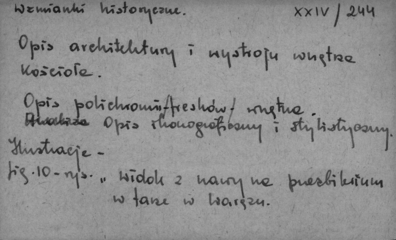 Wzmianki historyczne. XXIV/244
Opis architektury i wystroju wnętrza
Kościoła.
Opis polichromii/fresków/ wnętrza.
Opis ikonograficzny i stylistyczny.
Ilustracje -
fig. 10 - rys. „ widok z nawy na prezbiterium
w farze w